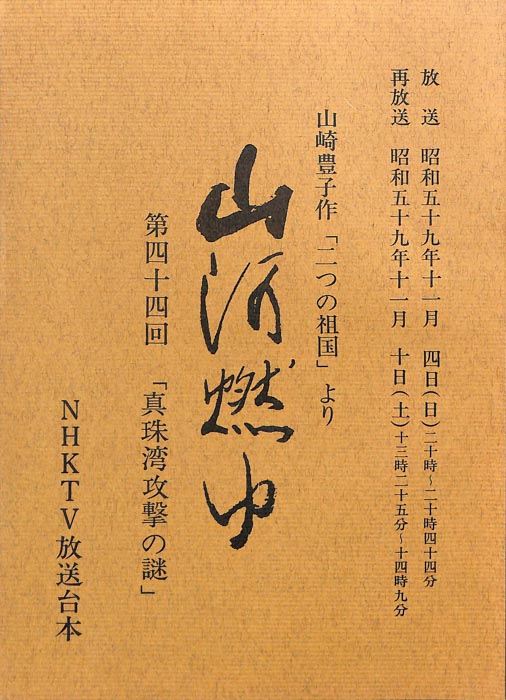 放送 昭和五十九年十一月 四日(日)二十時〜二十時四十四分
再放送 昭和五十九年十一月 十日(土)十三時二十五分〜十四時九分
山崎豊子作「二つの祖国」より
山河燃ゆ
第四十四回 「真珠湾攻撃の謎」
NHKTV放送台本